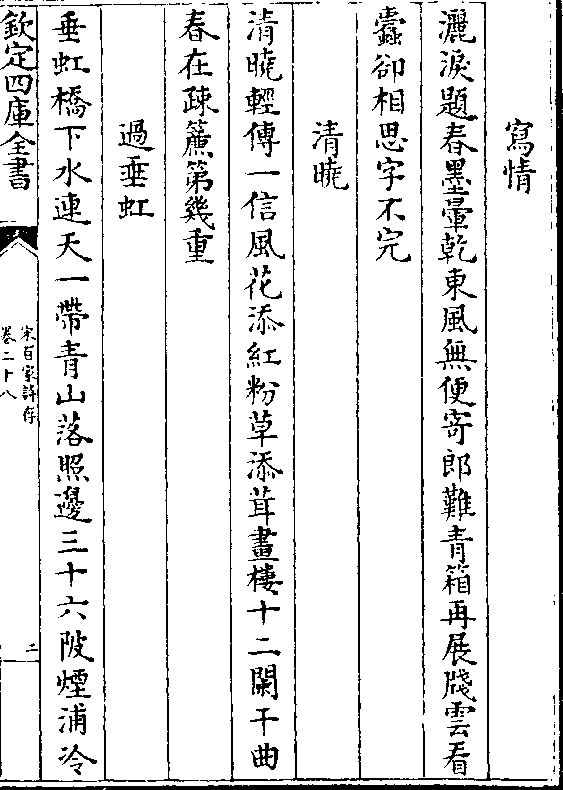 寫情
灑淚題春墨暈乾東風無便寄郎難青箱再展牋雲看
蠹卻相思字不完
清曉
清曉輕傳一信風花添紅粉草添茸畫樓十二闌干曲
春在疎簾第幾重
過垂虹
垂虹橋下水連天一帶青山落照邊三十六陂煙浦冷
欽定四庫全書
宋百家詩存
卷二十八
三